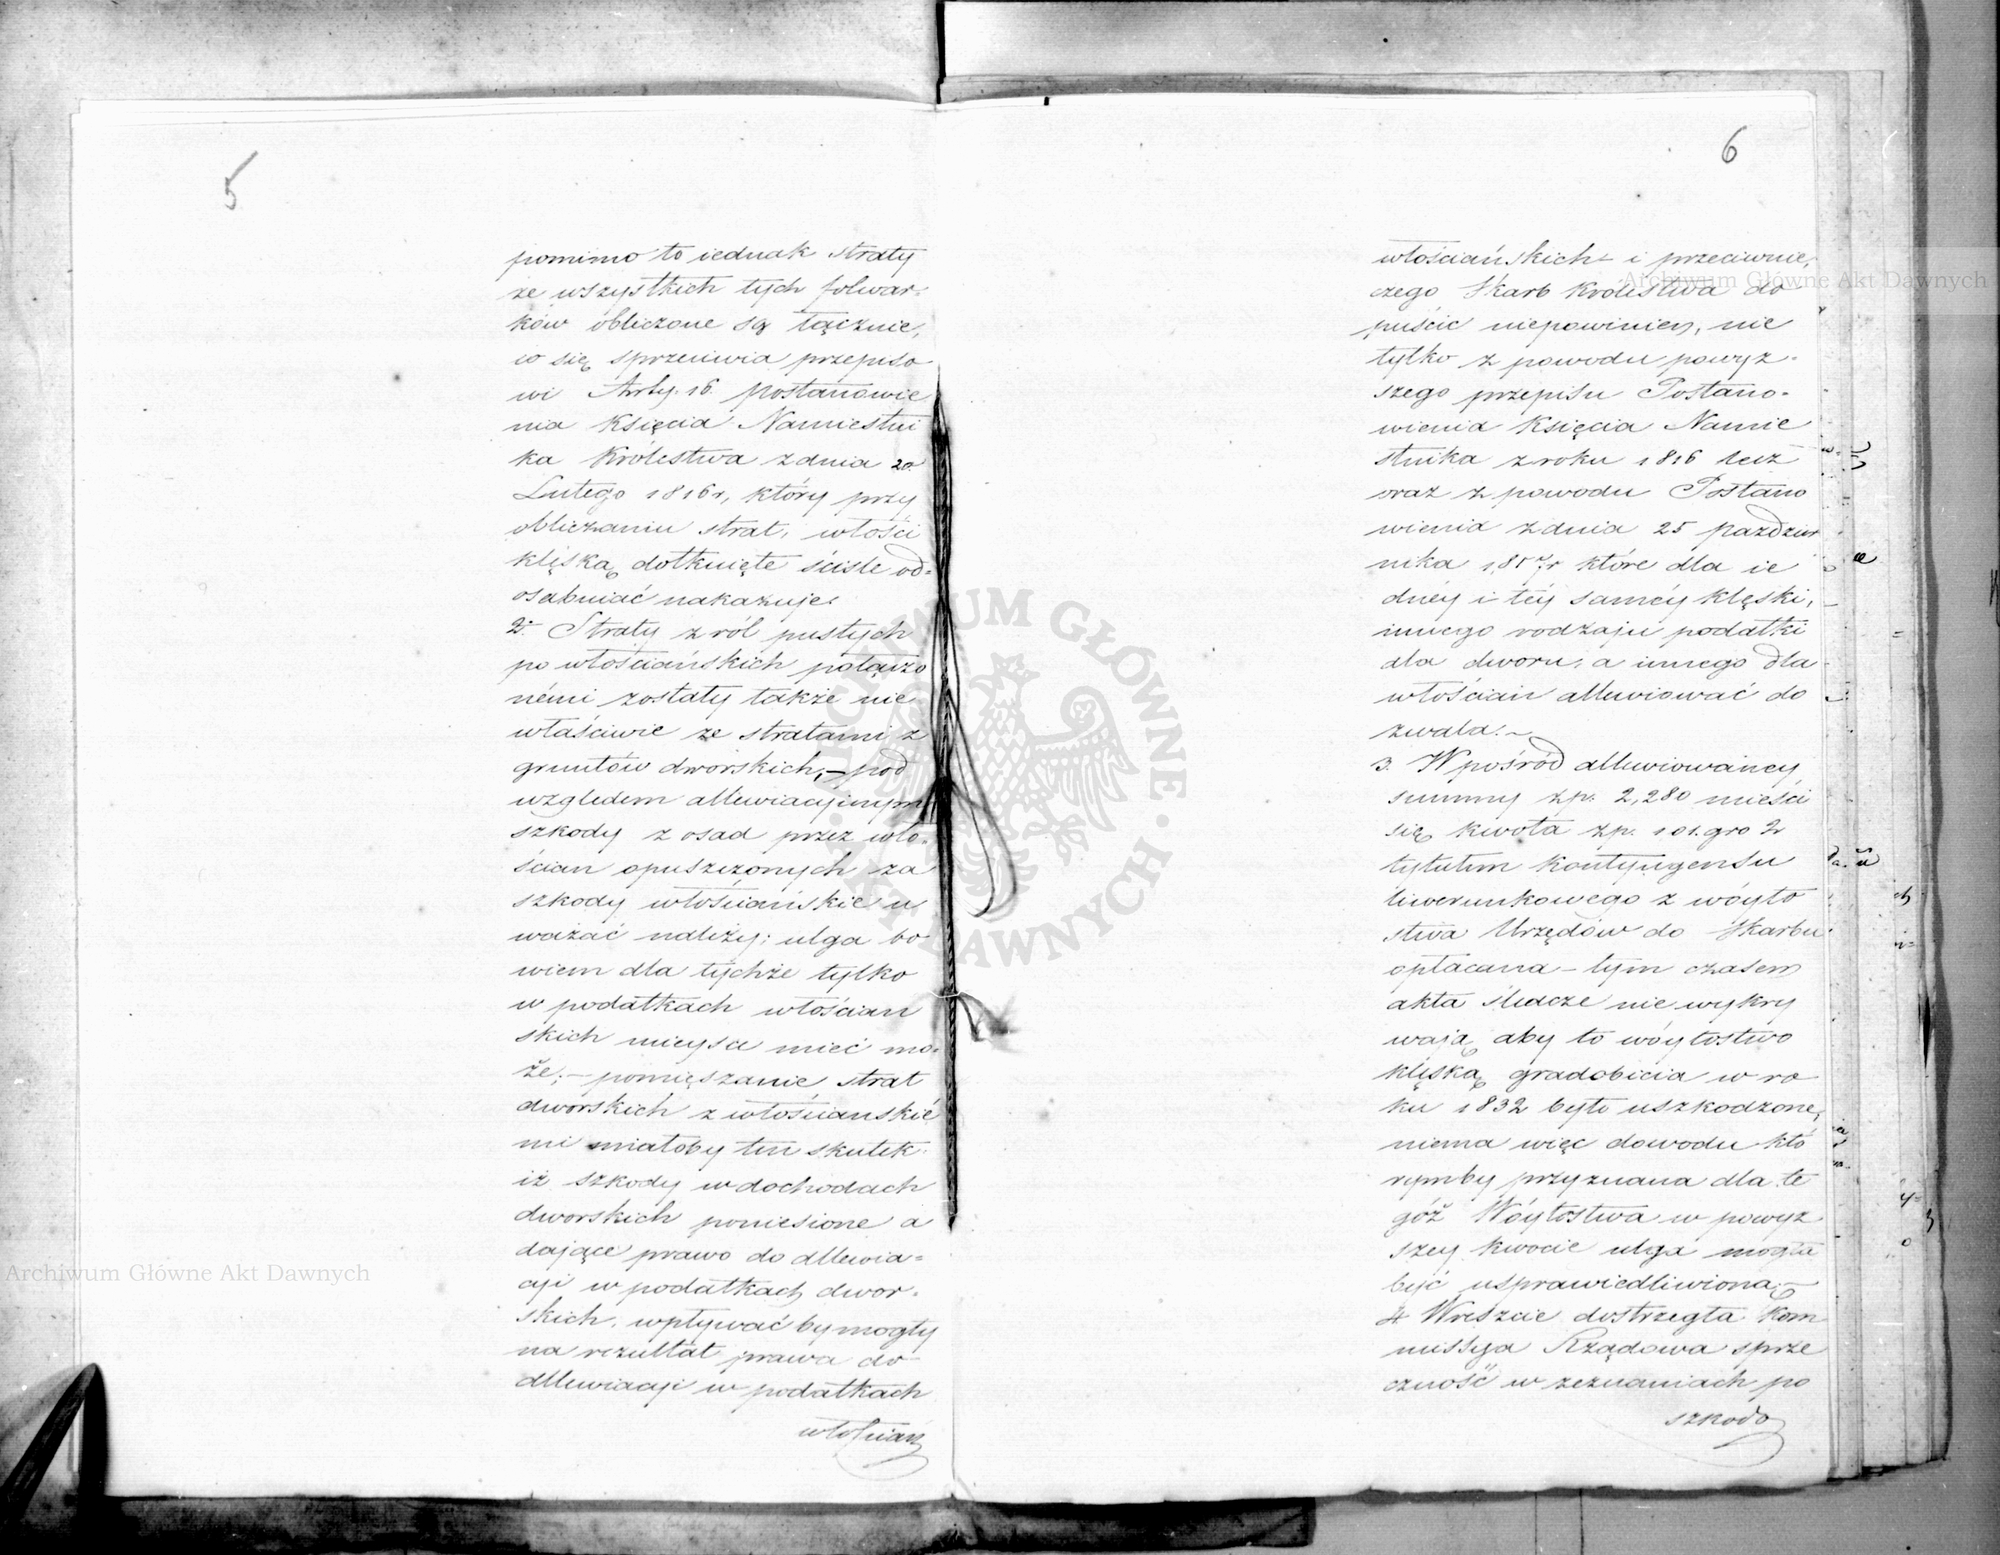 5
pomimo to iednak straty
ze wszystkich tych folwar-
ków obliczone są łącznie,
co się sprzeciwia przepiso
wi Arty. 16. postanowie
nia Księcia Namiestni
ka Królestwa z dnia 20.
Lutego 1816 r, który przy
obliczaniu strat, włości
klęską dotknięte ściśle od=
osabniać nakazuje.
2. Straty z ról pustych
po włościańskich połączo
némi zostały także nie
właściwie ze stratami z
gruntów dworskich, – pod
względem allewiacyinym
szkody z osad przez wło-
ścian opuszczonych za
szkody włościańskie u
ważać należy; ulga bo
wiem dla tychże tylko
w podatkach włościan
skich mieysce mieć mo-
że; – pomięszanie strat
dworskich z włościanskié
mi miałoby ten skutek
iż szkody w dochodach
dworskich poniesione a
dające prawo do allewia=
cyi w podatkach dwor-
skich, wpływać by mogły
na rezultat prawa do
allewiacyi w podatkach
włościań
6
włościańskich i przeciwnie,
czego Skarb Królestwa do
puścić niepowinien, nie
tylko z powodu powyż-
szego przepisu Postano-
wienia Księcia Namie
stnika z roku 1816 lecz
oraz z powodu Postano
wienia z dnia 25 pazdzier
nika które dla ie
dnéy i téy saméy klęski,
innego rodzaju podatki
dla dworu, a innego dla
włościan allewiować do
zwala. –
3. W pośród allewiowanéy
summy zp. 2,280 mieści
się kwota zp. 101. gro 2
tytułem kontyngensu
liwerunkowego z wóyto
stwa Urzędów do Skarbu
opłacana – tym czasem
akta śledcze nie wykry
wają, aby to wóytostwo
klęską gradobicia w ro
ku 1832 było uszkodzone,
niema więc dowodu któ
rymby przyznana dla te
goż Wóytostwa w powyż
szey kwocie ulga mogła
być usprawiedliwioną; –
4. Wreszcie dostrzegła Kom
missya Rządowa sprze
czność w zeznaniach po
szkodo
Archiwum Główne Akt Dawnych
Archiwum Główne Akt Dawnych
ARCHIWUM GŁÓWNE AKT DAWNYCH